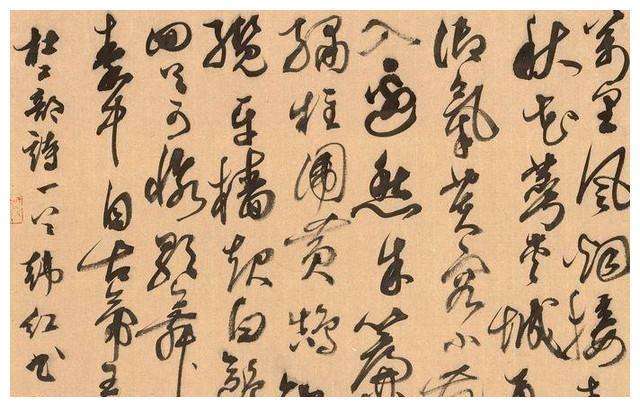 萬里風烟接
秋花萼夾城
御氣芙蓉小
入邊愁朱簾
繡柱圍黄鵠
纜牙檣起白鷗
回首可憐歌舞
秦中自古帝王
杜工部詩一首韓紅书